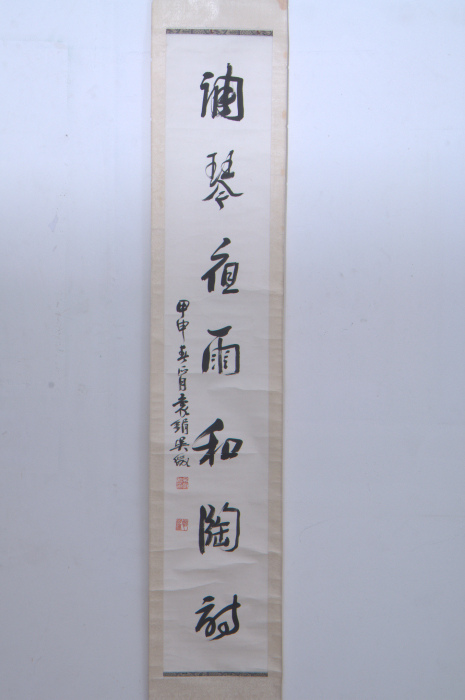 調琴夜雨和陶詩
甲申春